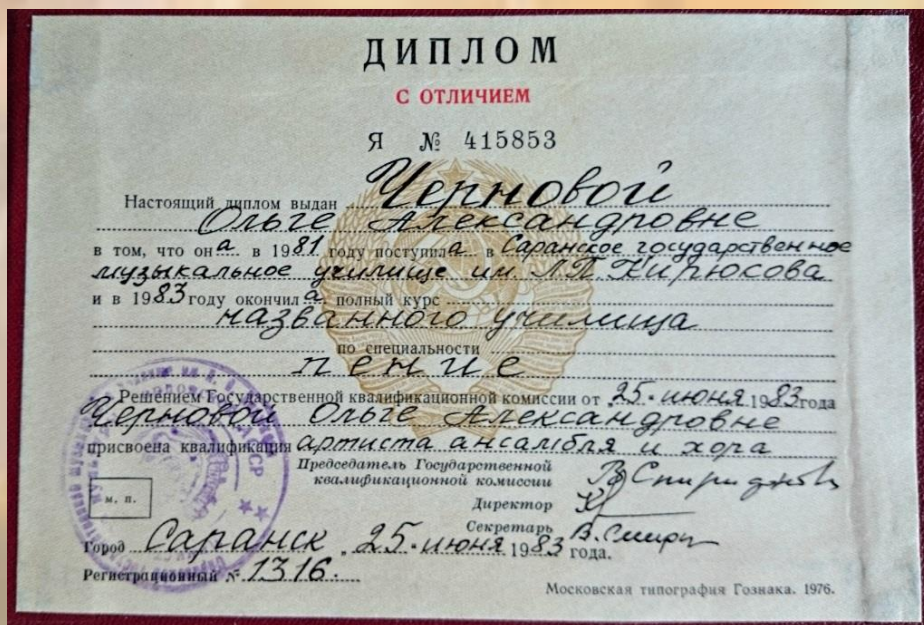 ДИПЛОМ
С ОТЛИЧИЕМ
Я № 415853
Настоящий диплом выдан Черновой
Ольге Александровне
в том, что она в 1981 году поступила в Саранское государственное
музыкальное училище им. Л.П. Кирюсова
и в 1983 году окончила полный курс
названного училища
по специальности
пение
Решением Государственной квалификационной комиссии от 25 июня 1983 года
Черновой Ольге Александровне
присвоена квалификация артиста ансамбля и хора
Председатель Государственной
квалификационной комиссии
Директор
Секретарь
м. п.
Город Саранск 25 июня 1983 года.
Регистрационный № 1316.
Московская типография Гознака. 1976.